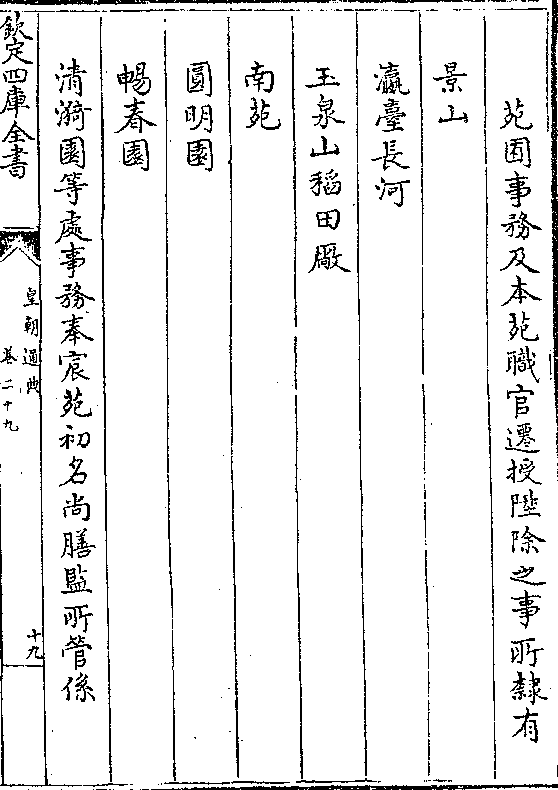 苑囿事務及本苑職官遷授陞除之事所隸有
景山
瀛臺長河
玉泉山稻田厰
南苑
圓明園
暢春園
清漪園等處事務奉宸苑初名尚膳監所管係
欽定四庫全書
皇朝通典
卷二十九
十九